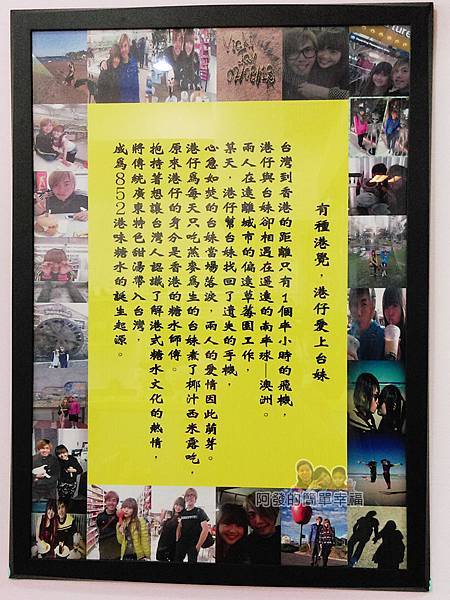 有種港覺，港仔愛上台妹
台灣到香港的距離只有1個半小時的飛機，
港仔與台妹卻相遇在遙遠的南半球—澳洲。
兩人在遠離城市的偏遠草莓園工作，
某天，港仔幫台妹找回了遺失的手機，
心急如焚的台妹當場落淚，兩人的愛情因此萌芽。
港仔為每天只吃燕麥為生的台妹煮了椰汁西米露吃，
原來港仔的身分是香港的糖水師傅。
抱持著想讓台灣人認識了解港式糖水文化的熱情，
將傳統廣東特色甜湯帶入台灣，
成為852港味糖水的誕生起源。
阿發的簡單幸福